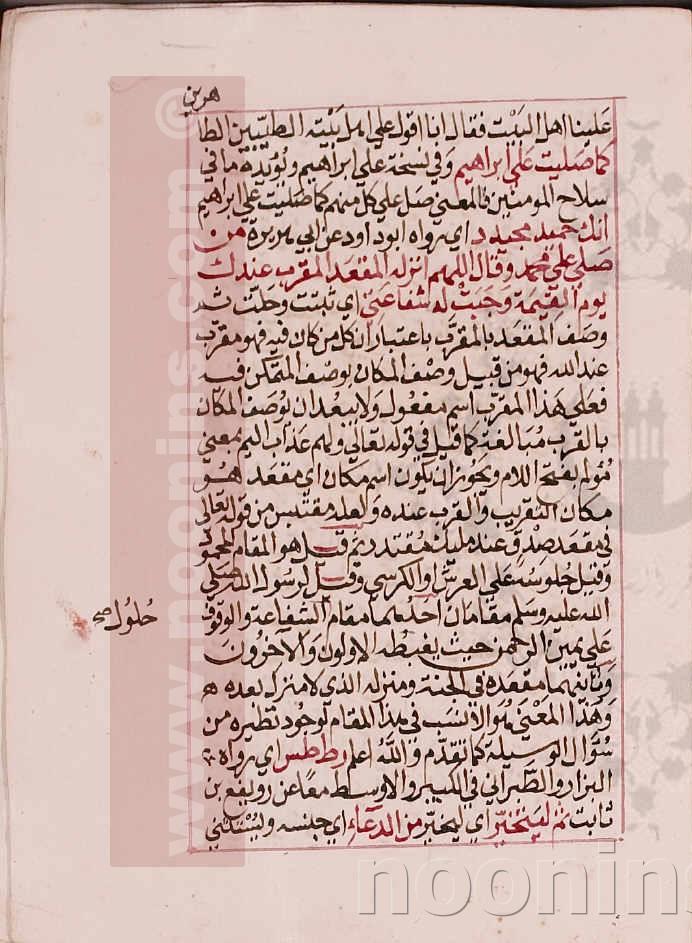 هرين
علينا اهل البيت فقال انا اقول على اهل بيته الطيبين الطا
كما صليت على ابراهيم وفي نسخة على ابراهيم ويؤيده ما في
سلاح المومنين فالمعنى صل على كل منهم كما صليت على ابراهيم
انك حميد مجيد د اي رواه ابو داود عن ابي هريرة من
صلى على محمد وقال اللهم انزله المقعد المقرب عندك
يوم القيمة وجبت له شفاعتي اي ثبتت وحلت ثم
وصف المقعد بالمقرب باعتبار ان كل من كان فيه فهو مقرب
عند الله فهو من قبيل وصف المكان بوصف المتمكن فيه
فعلى هذا المقرب اسم مفعول ولا يبعد ان يوصف المكان
بالقرب مبالغة كما قيل في قوله تعالى ولهم عذاب اليم بمعنى
مؤلم بفتح اللام ويجوز ان يكون اسم مكان اي مقعد هو
مكان التقريب والقرب عنده ولعله مقتبس من قوله تعالى
في مقعد صدق عند مليك مقتدر ثم قيل هو المقام المحمود
وقيل جلوسه على العرش او الكرسي وقيل لرسول الله صلى
الله عليه وسلم مقامان احدهما مقام الشفاعة والوقوف
حلول صح
على يمين الرحمن حيث يغبطه الاولون والآخرون
وثانيهما مقعده في الجنة ومنزله الذي لا منزل بعده ه
وهذا المعنى هو الانسب في هذا المقام لوجود نظيره من
سؤال الوسيلة كما تقدم والله اعلم ر ط طس اي رواه
البزار والطبراني في الكبير والاوسط معا عن رويفع بن
ثابت ثم ليتخير اي ليختر من الدعاء اي جنسه وليستثنى
www.noonins.com ©
noonins